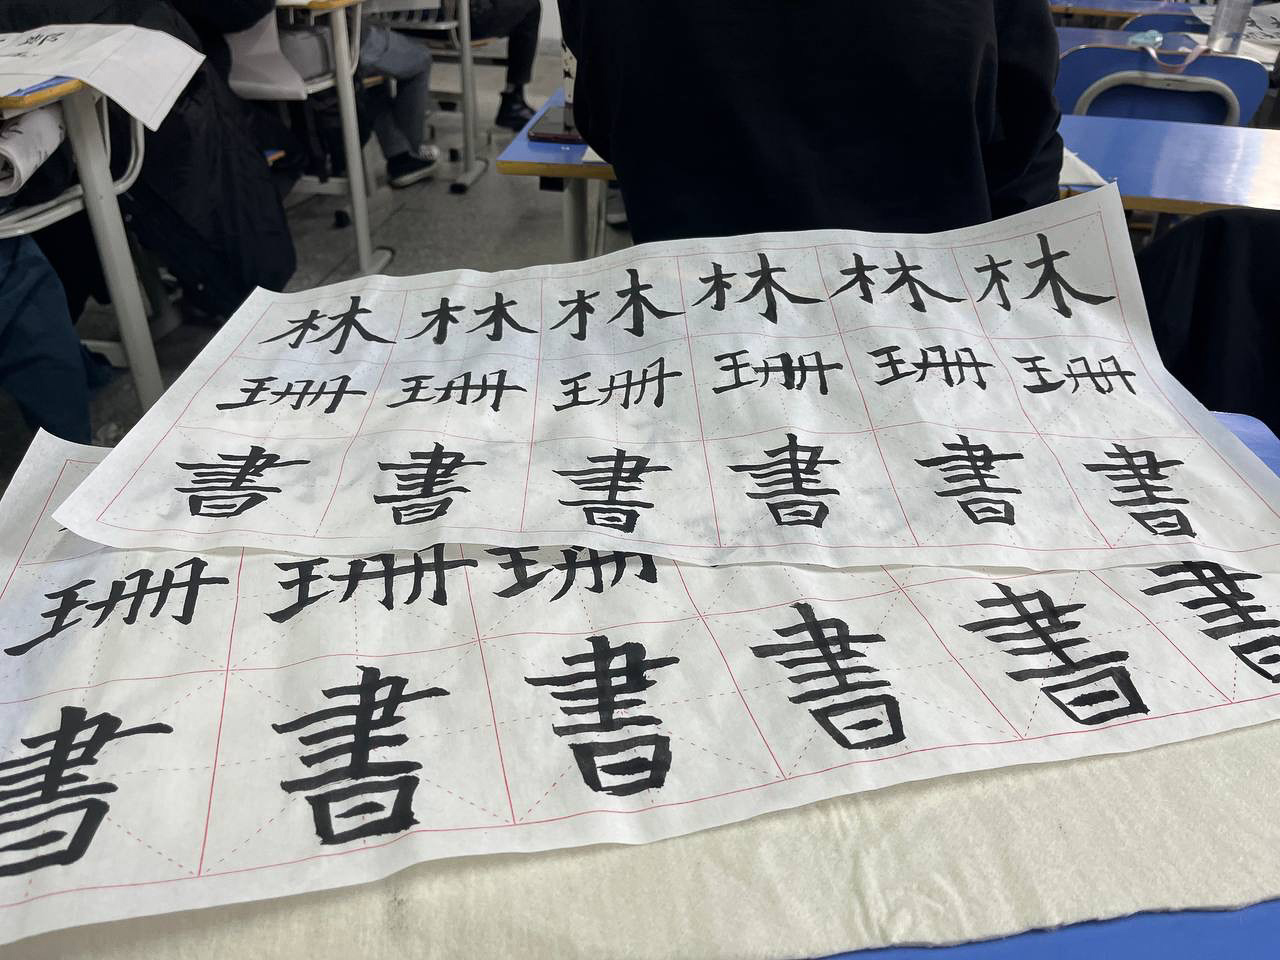 林林林林林林
珊珊珊珊珊珊
書書書書書書
珊珊珊
書書書書書書